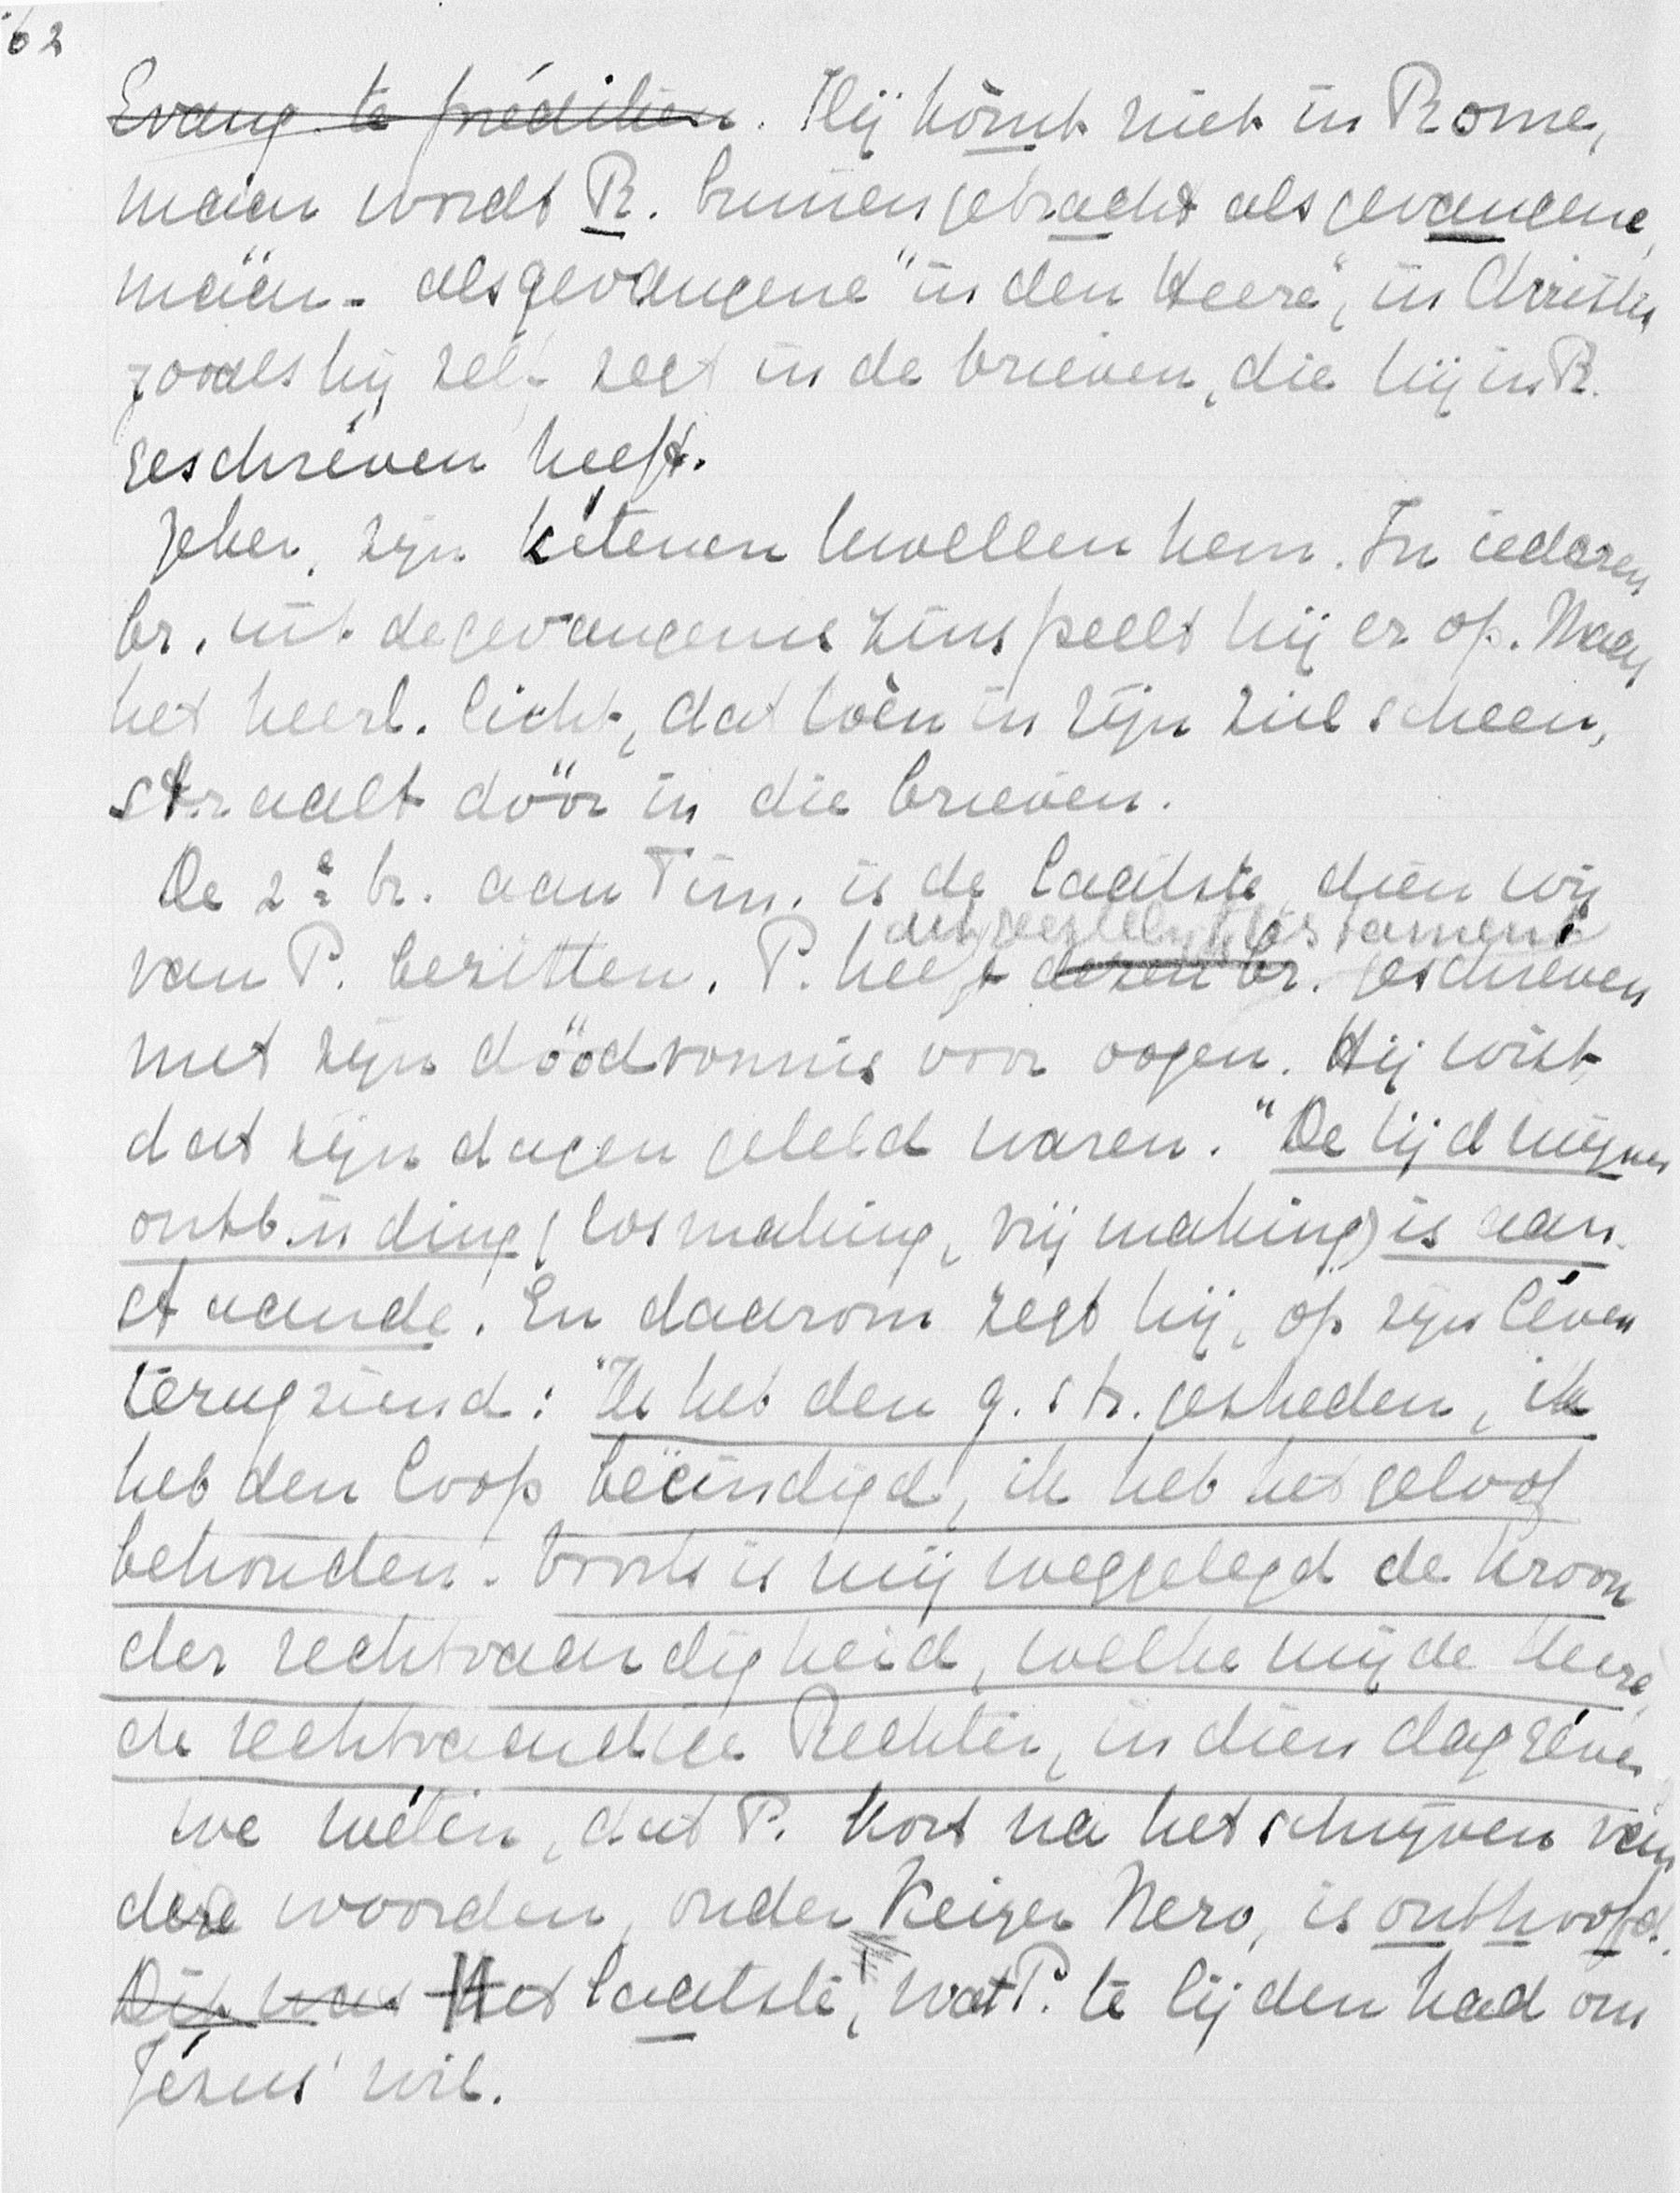 62
Evang. te prediken. Hij kòmt niet in Rome,
maar wordt R. binnengebracht als gevangene,
määr - als gevangene "in den Heere", in Christus
zooals hij zelf zegt in de brieven, die hij in R.
geschreven heeft.
Zeker, zijn ketenen kwellen hem. In iederen
br. uit de gevangenis zinspeelt hij er op. Maar
het heerl. licht, dat toèn in zijn ziel scheen,
straalt döör in die brieven.
De 2e br. aan Tim. is de laatste, dien wij
dit geestelijk testament
van P. bezitten. P. heeft dezen br. geschreven
met zijn döödvonnis voor oogen. Hij wist,
dat zijn dagen geteld waren. "De tijd mijner
ontbinding (losmaking, vrijmaking) is aan-
staande. En daarom zegt hij, op zijn léven
terugziend: "Ik heb den g. str. gestreden, ik
heb den loop beëindigd, ik heb het geloof
behouden. Voorts is mij weggelegd de kroon
der rechtvaardigheid, welke mij de Heere,
de rechtvaardige Rechter, in dien dag géven
we wéten, dat P. kort na het schrijven van
deze woorden, onder Keizer Nero, is onthoofd.
Dit was Het laatste, wat P. te lijden had om
Jézus' wil.